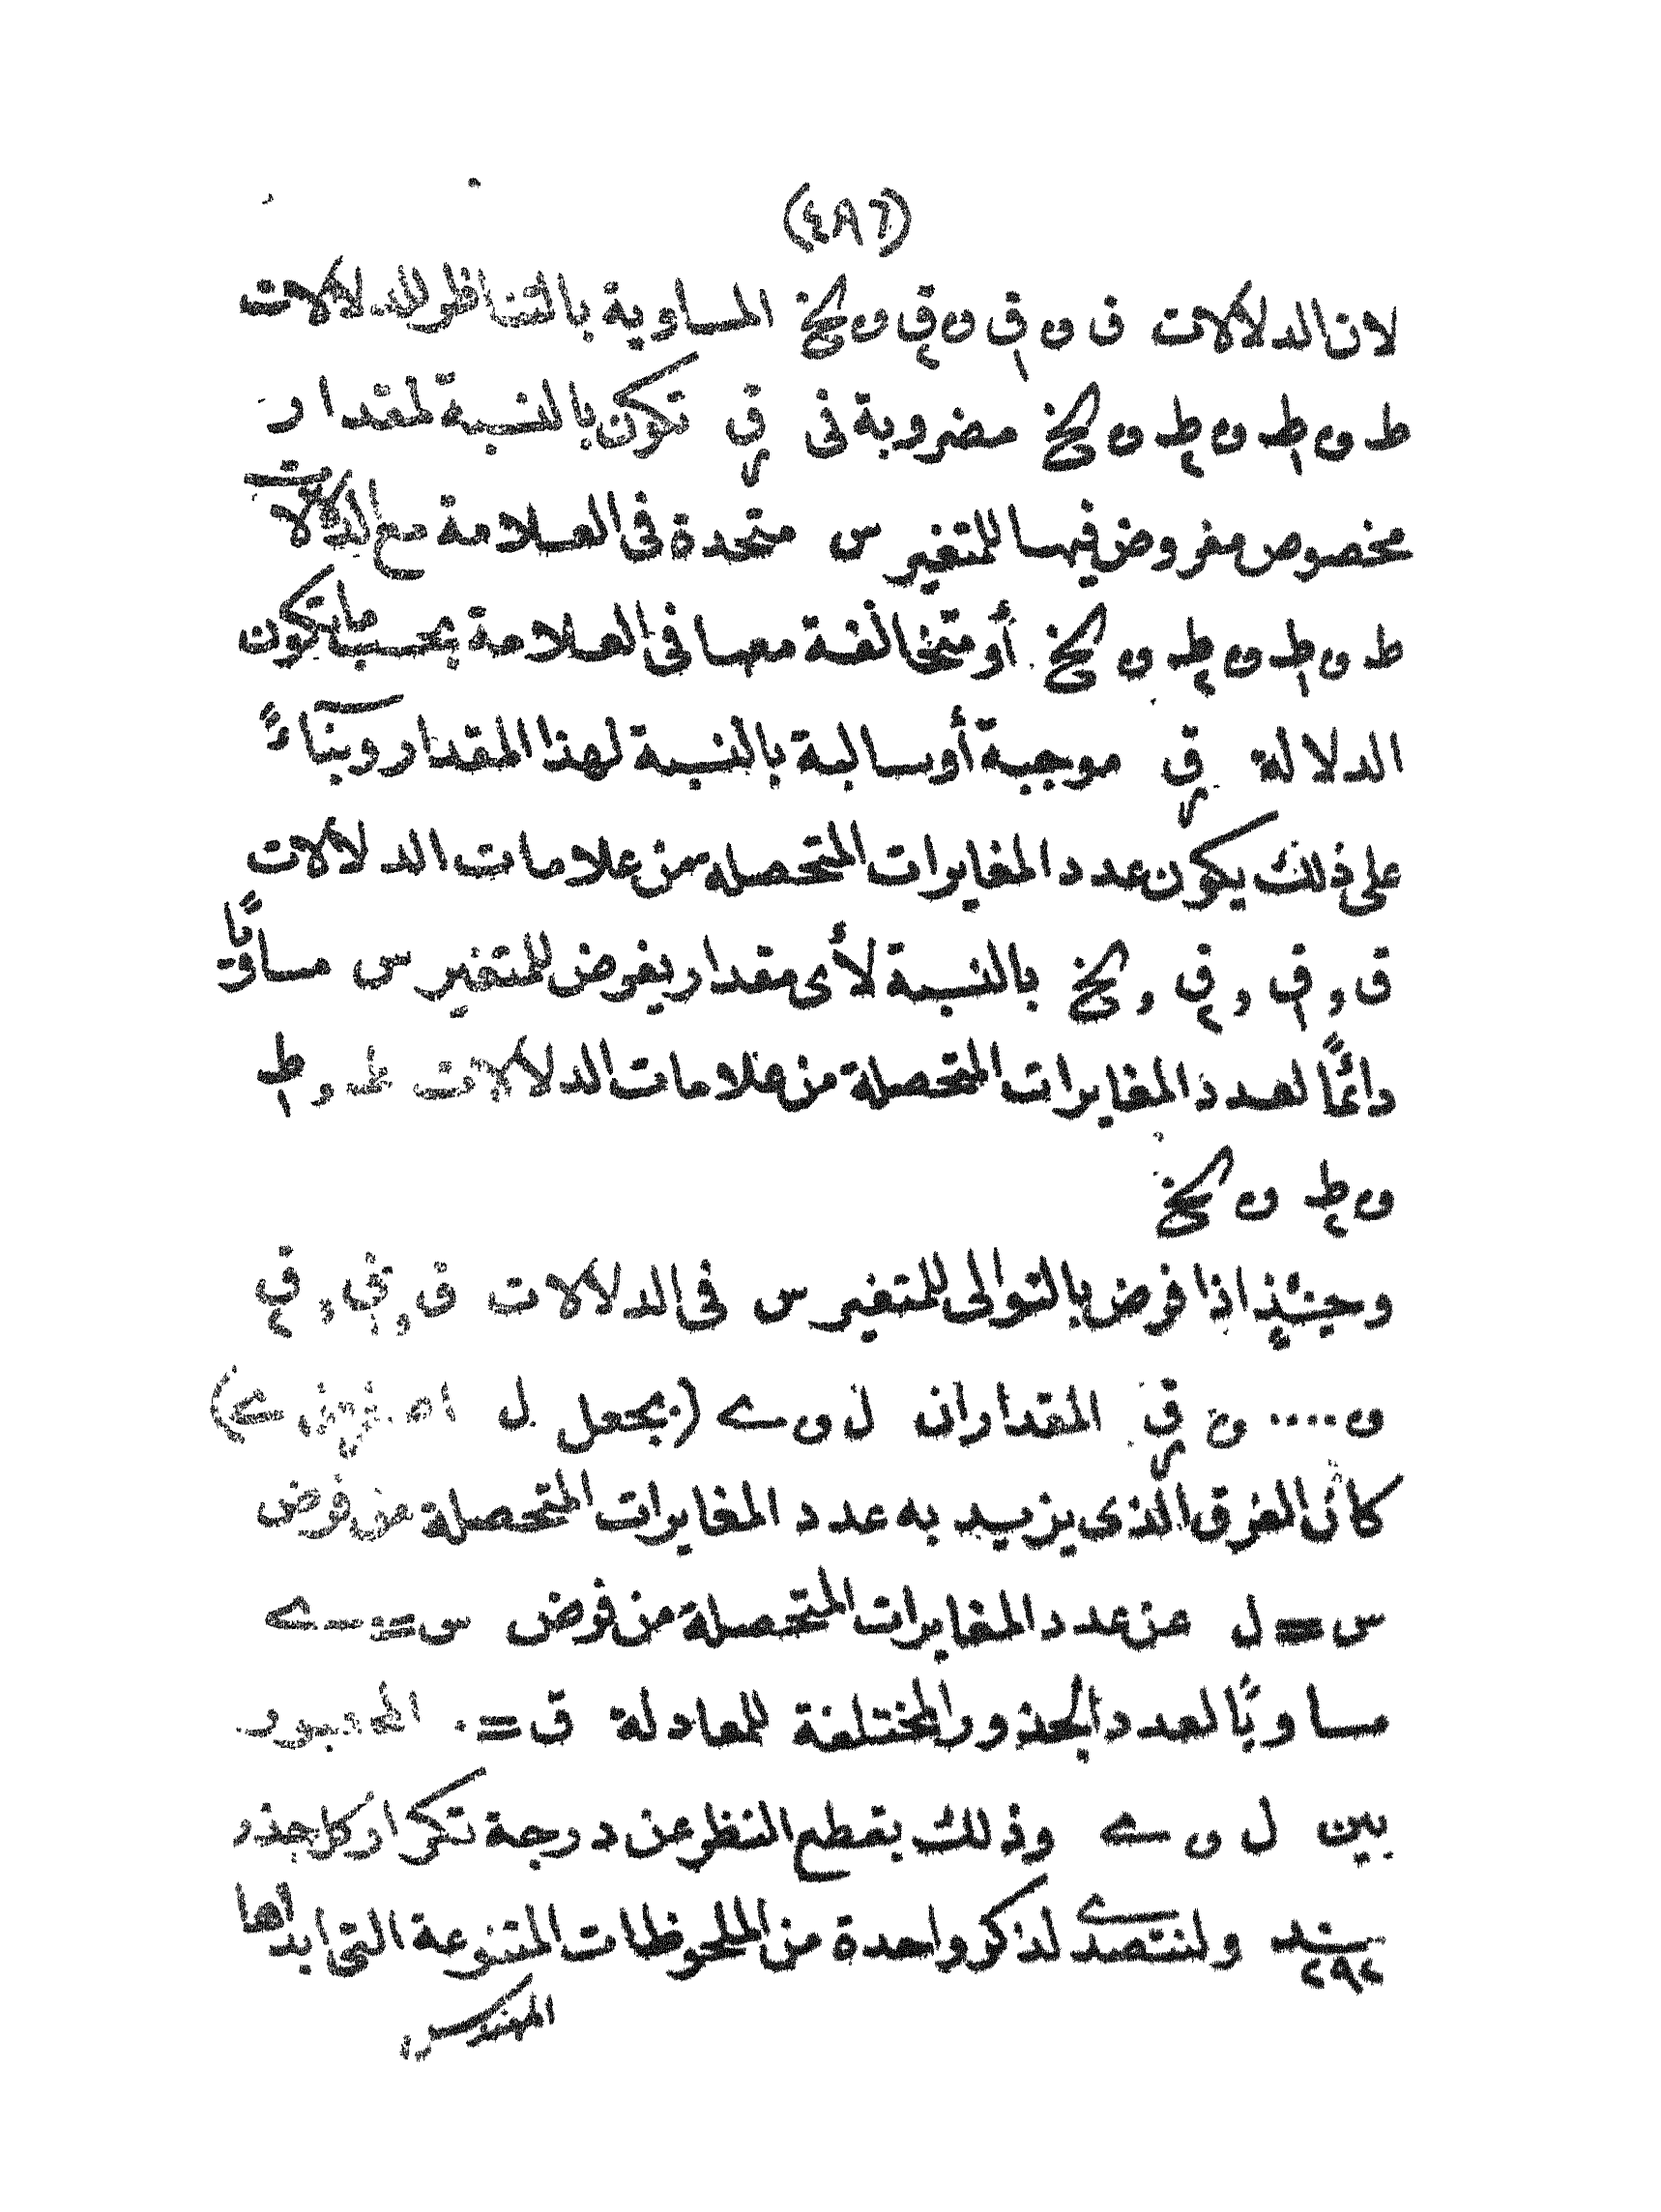 (٤٨٦)
لان الدلالات ق و ق١ و ق٢ و الخ المساوية بالتناظر للدلالات
ط و ط١ و ط٢ و الخ مضروبة فى قر تكون بالنسبة لمقدار
مخصوص مفروض فيها للمتغير س متحدة فى العلامة مع الدلالات
ط و ط١ و ط٢ و الخ أو متخالفة معها فى العلامة بحسب ما تكون
الدلالة قر موجبة أو سالبة بالنسبة لهذا المقدار وبناءً
على ذلك يكون عدد المغايرات المتحصلة من علامات الدلالات
ق و ق١ و ق٢ و الخ بالنسبة لأى مقدار يفرض للمتغير س مساويًا
دائمًا لعدد المغايرات المتحصلة من علامات الدلالات ط و ط١
و ط٢ و الخ
وحينئذٍ اذا فرض بالتوالى للمتغير س فى الدلالات ق و ق١ و ق٢
و .... و قر المقداران ل و ے (بجعل ل اصغر من ے)
كان الفرق الذى يزيد به عدد المغايرات المتحصلة من فرض
س = ل عن عدد المغايرات المتحصلة من فرض س = ے
مساويًا لعدد الجذور المختلفة للمعادلة ق = ٠ المحصور
بين ل و ے وذلك بقطع النظر عن درجة تكرار كل جذر
بند ٢٩٢ ولنتصدى لذكر واحدة من الملحوظات المتنوعة التى ابداها
المهندس